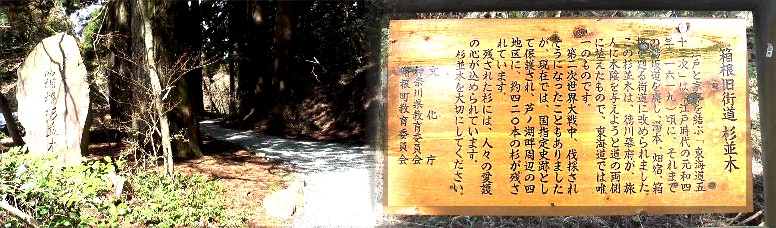 箱根杉並木
箱根旧街道 杉並木
江戸と京都を結ぶ「東海道五
十三次」は、江戸時代の元和四
年（一六一九）頃に、それまで
の
街道を廃し、湯本、畑宿、箱
根を通る街道に改められました。
この杉並木は、徳川幕府が、旅
人に木陰を与えようと道の両側
に植えたもので、東海道では唯
一のものです。
第二次世界大戦中、伐採され
そうになったこともありました
が、現在では、国指定史跡とし
て保護され、芦ノ湖畔周辺の四
地区に、約四二〇本の杉が残さ
れています。
残された杉には、人々の愛護
の心が込められています。
杉並木を大切にしてください。
文化庁
神奈川県教育委員会
箱根町教育委員会